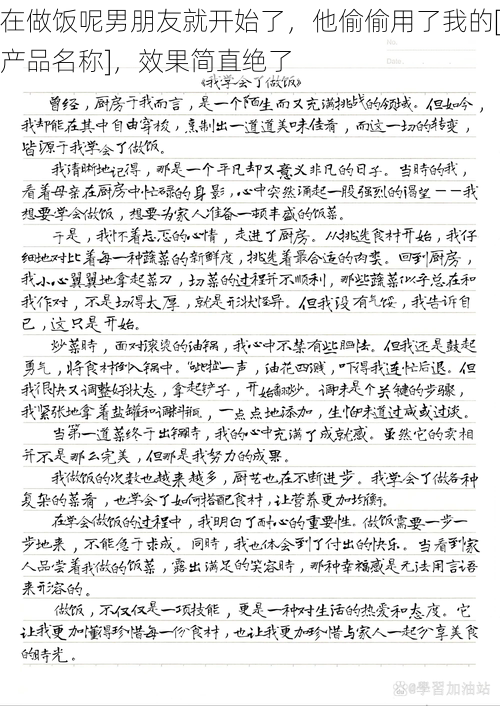 在做饭呢男朋友就开始了，他偷偷用了我的[
产品名称]，效果简直绝了
No.
Date.
《我学会了做饭》
曾经，厨房于我而言，是一个陌生而又充满挑战的领域。但如今，
我却能在其中自由穿梭，烹制出一道道美味佳肴，而这一切的转变，
皆源于我学会了做饭。
我清晰地记得，那是一个平凡却又意义非凡的日子。当时的我，
看着母亲在厨房中忙碌的身影，心中突然涌起一股强烈的渴望——我
想要学会做饭，想要为家人准备一顿丰盛的饭菜。
于是，我怀着忐忑的心情，走进了厨房。从挑选食材开始，我仔
细地对比着每一种蔬菜的新鲜度，挑选着最合适的肉类。回到厨房，
我小心翼翼地拿起菜刀，切菜的过程并不顺利，那些蔬菜似乎总在和
我作对，不是切得太厚，就是形状怪异。但我没有气馁，我告诉自
己，这只是开始。
炒菜时，面对滚烫的油锅，我心中不禁有些胆怯。但我还是鼓起
勇气，将食材倒入锅中。“呲啦”一声，油花四溅，吓得我连忙后退。但
我很快又调整好状态，拿起铲子，开始翻炒。调味是个关键的步骤，
我紧张地拿着盐罐和调料瓶，一点点地添加，生怕味道过咸或过淡。
当第一道菜终于出锅时，我的心中充满了成就感。虽然它的卖相
并不是那么完美，但那是我努力的成果。
我做饭的次数也越来越多，厨艺也在不断进步。我学会了做各种
复杂的菜肴，也学会了如何搭配食材，让营养更加均衡。
在学会做饭的过程中，我明白了耐心的重要性。做饭需要一步一
步地来，不能急于求成。同时，我也体会到了付出的快乐。当看到家
人品尝着我做的饭菜，露出满足的笑容时，那种幸福感是无法用言语
来形容的。
做饭，不仅仅是一项技能，更是一种对生活的热爱和态度。它
让我更加懂得珍惜每一份食材，也让我更加珍惜与家人一起分享美食
的时光。
@學習加油站